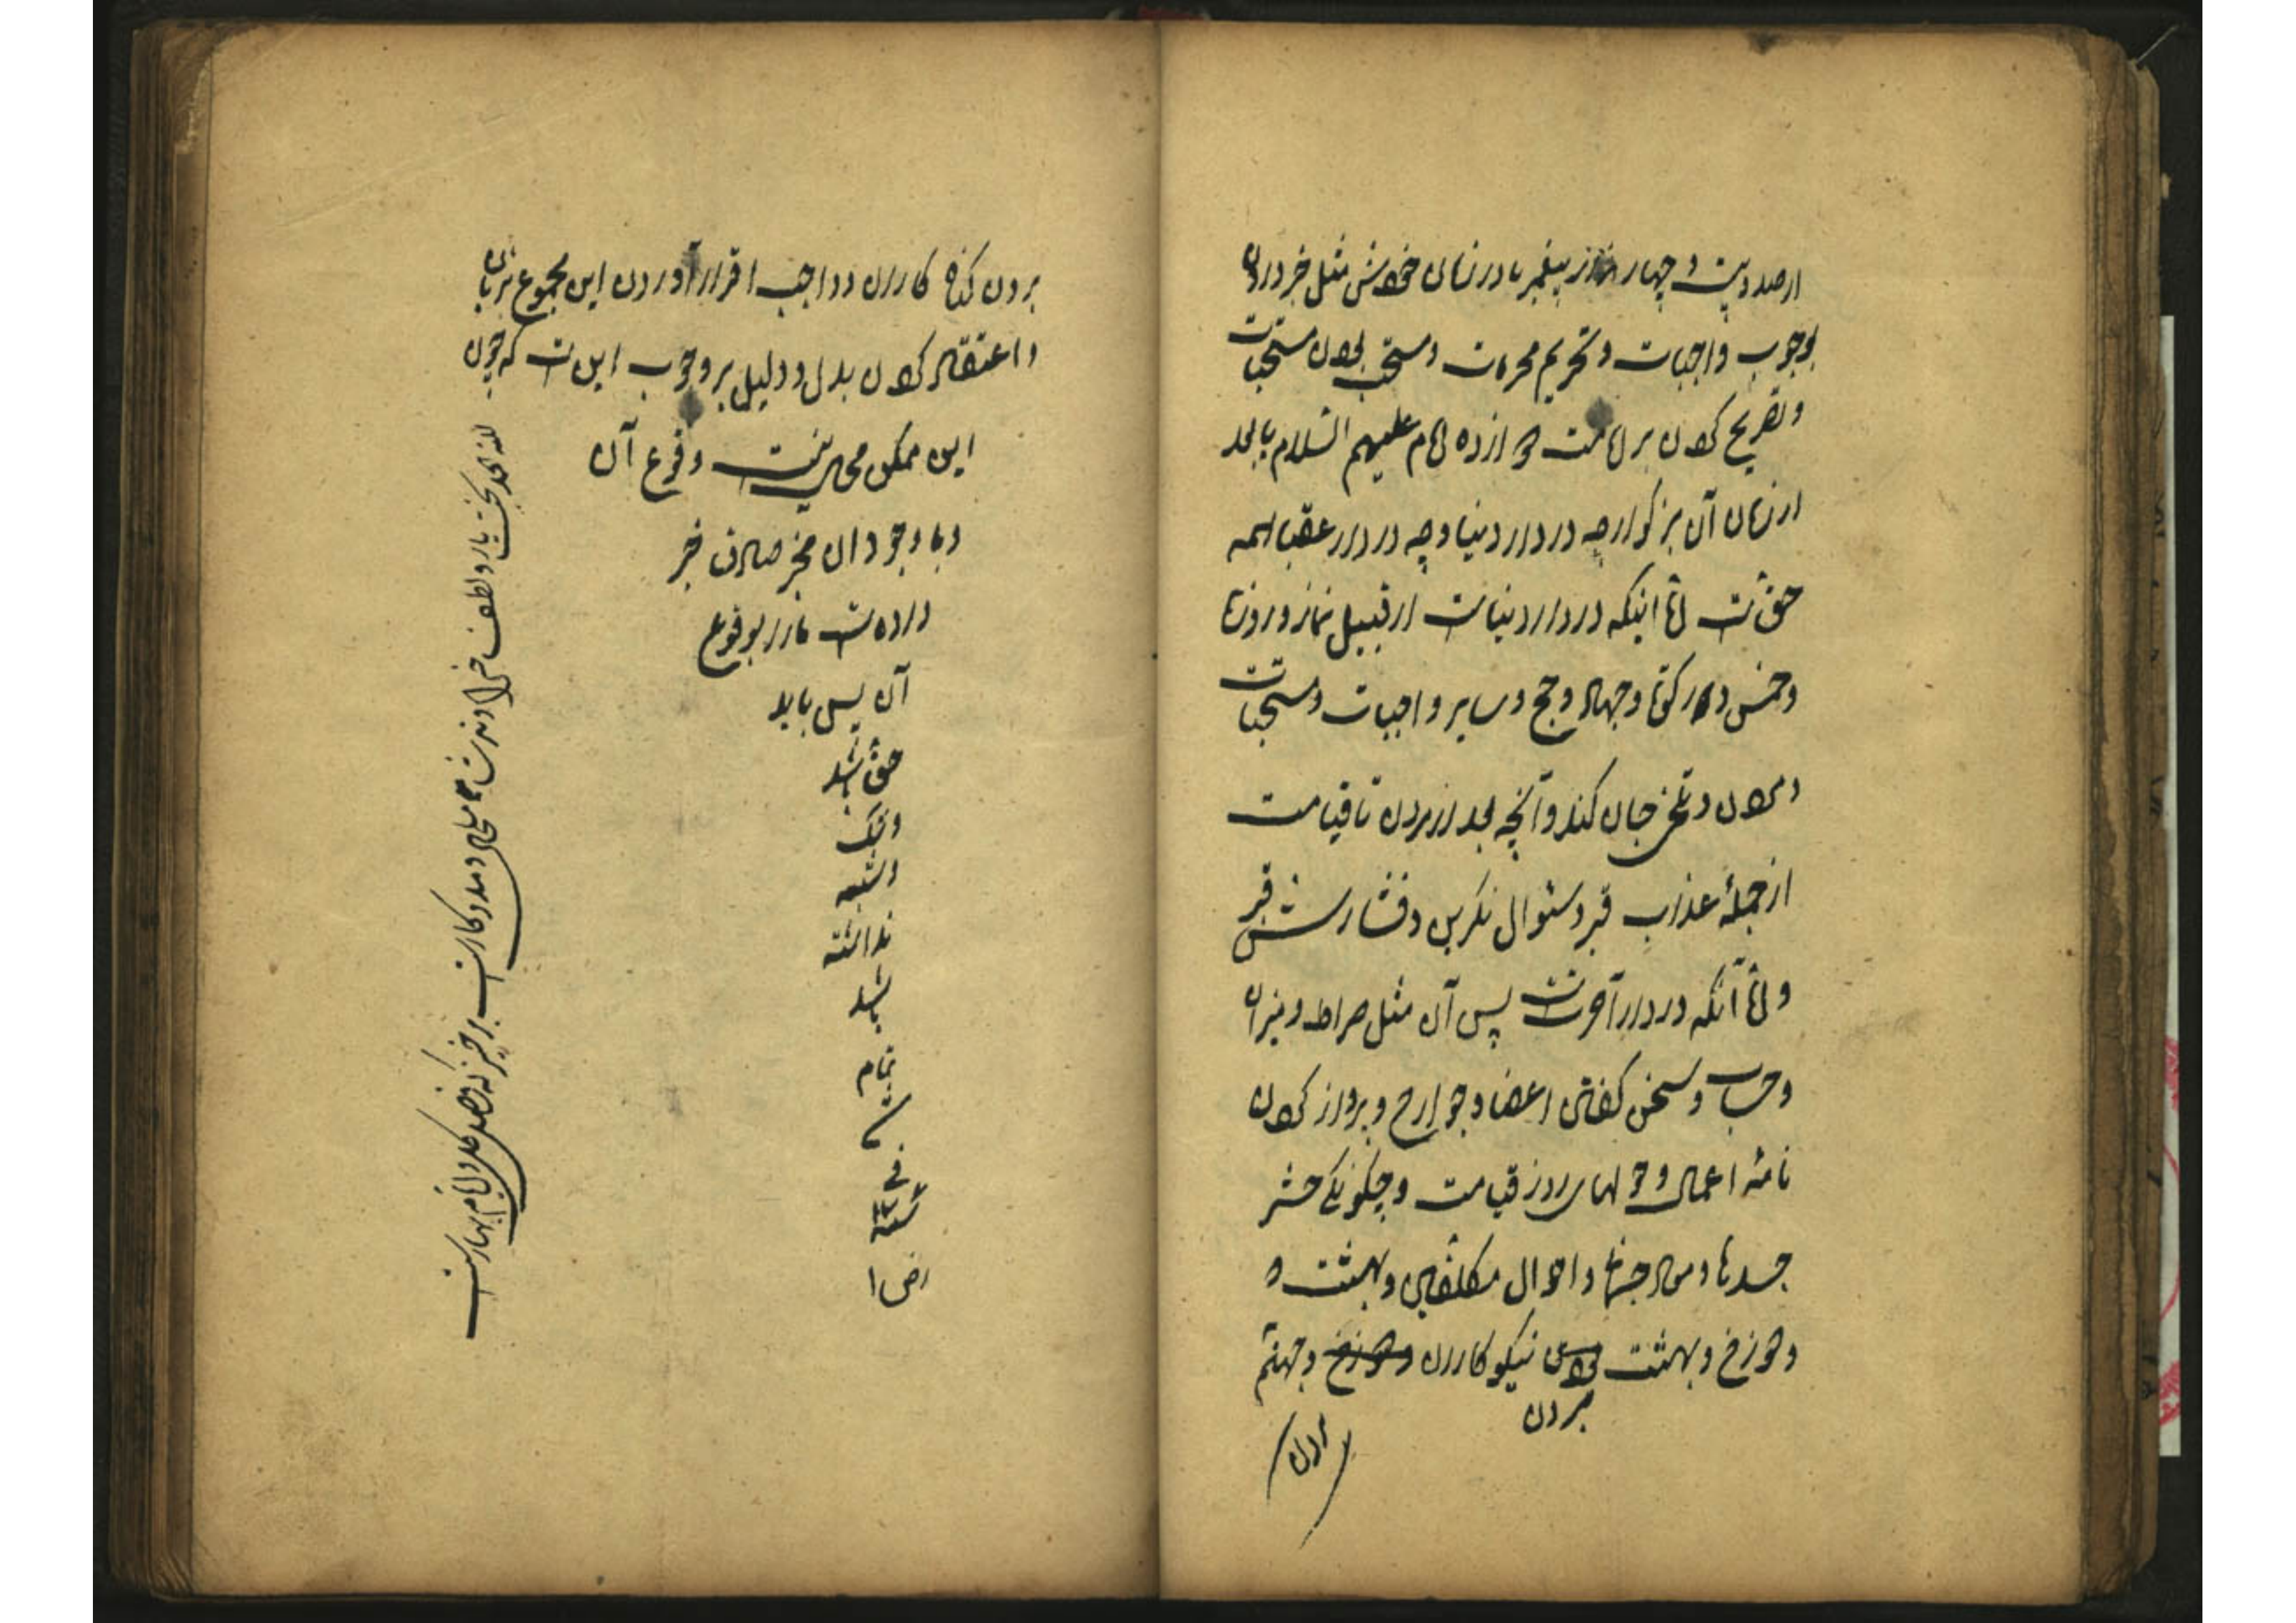 از صد و بیست و چهار هزار پیغمبر یا در زمان خودش مثل خبر دادن
بوجوب واجبات و تحریم محرمات و مستحب بودن مستحبات
و تصریح کردن بر امامت دوازده امام علیهم السلام یا بعد
از زمان آن بزرگوار چه در دار دنیا و چه در دار عقبا همه
حق است امّا اینکه در دار دنیاست از قبیل نماز و روزه
و خمس و زکوة و جهاد و حج و سایر واجبات و مستحبات
و مردن و تلخی جان کندن و آنچه بعد از مردن تا قیامت
از جملهٔ عذاب قبر و سئوال نکرین و فشارش قبر
و امّا آنکه در دار آخرتست پس آن مثل صراط و میزان
و حساب و سخن گفتن اعضا و جوارح و پرواز کردن
نامهٔ اعمال و هولهای روز قیامت و چگونگی حشر
جسدها و معاد جسمانی و احوال مکلفین و بهشت و
دوزخ و بهشت بردن نیکوکاران و جهنّم
بردن
بردن گناه کاران و واجب اقرار آوردن این مجموع بزبان
و اعتقاد کردن بدل و دلیل بر وجوب این است که چون
این ممکن محال نیست وقوع آن
و با وجود آن مخبر صادق خبر
داده است ما را بوقوع
آن پس باید
حق باشد
و شک
و شبهه
نداشته
باشد
تمام
شد
فی
سنه
رضا
لله الحمد بخت یار و لطف خداوند